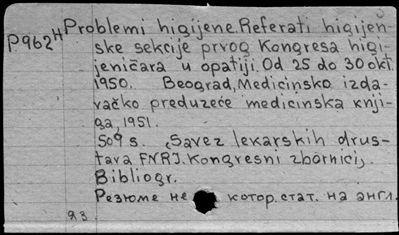 P962H Problemi higijene. Referati higijen-
ske sekcije prvog Kongresa higi-
jeničara u opatiji. Od 25 do 30 okt.
1950. Beograd, Medicinsko izda-
vačko preduzeće medicinska knji-
ga, 1951.
509 s. (Savez lekarskih drus-
tava FNRJ. Kongresni zbornici)
Bibliogr.
Резюме не котор. стат. на англ.